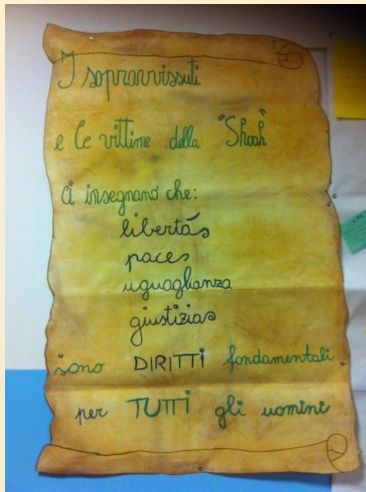 I sopravvissuti
e le vittime della "Shoah"
ci insegnano che:
libertà
pace
uguaglianza
giustizia
sono DIRITTI fondamentali
per TUTTI gli uomini